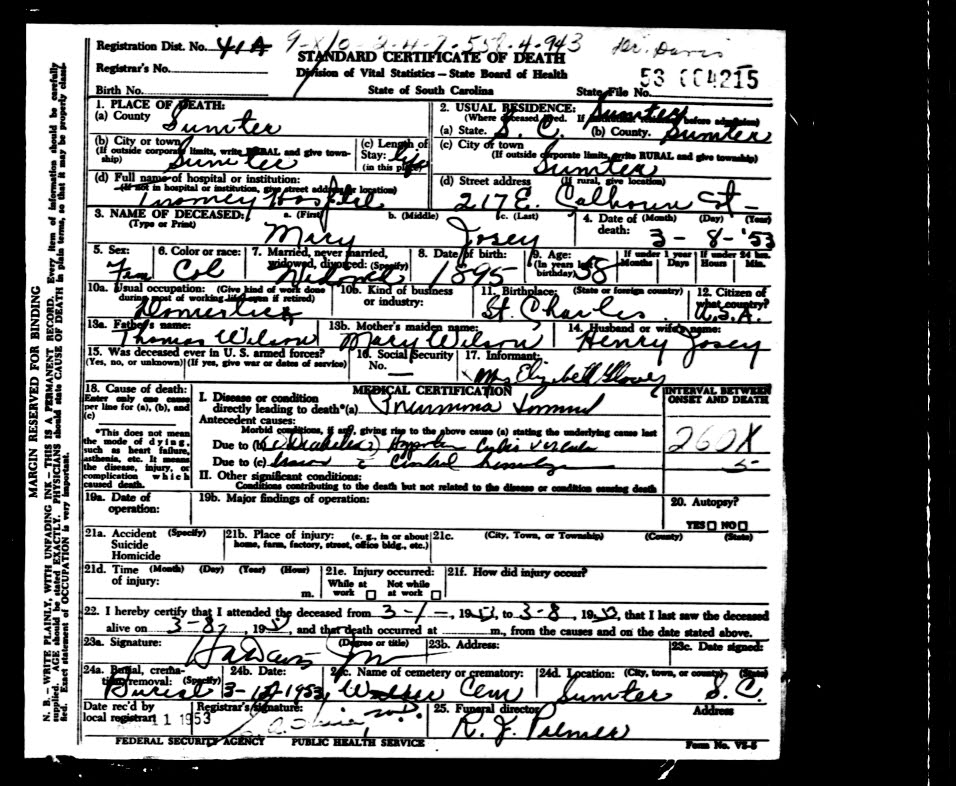 Registration Dist. No. 41A 9-X/0-2-4-7-558-4-943 Dr. Davis
STANDARD CERTIFICATE OF DEATH
Registrar's No.
Division of Vital Statistics – State Board of Health
53 004215
Birth No.
State of South Carolina
State File No.
1. PLACE OF DEATH:
(a) County Sumter
2. USUAL RESIDENCE: Sumter
(Where deceased lived. If before admission)
(a) State. S. C. (b) County. Sumter
(b) City or town
(If outside corporate limits, write RURAL and give township)
Sumter
(c) Length of Stay: life
(in this place)
(c) City of town
(If outside corporate limits, write RURAL and give township)
Sumter
(d) Full name of hospital or institution:
(If not in hospital or institution, give street address or location)
Tuomey Hospital
(d) Street address (If rural, give location)
217 E. Calhoun St-
3. NAME OF DECEASED: a. (First) b. (Middle) c. (Last)
(Type or Print)
Mary Josey
4. Date of death: (Month) (Day) (Year)
3 - 8 - '53
5. Sex: Fem
6. Color or race: Col
7. Married, never married, widowed, divorced: (Specify)
8. Date of birth: 1895
9. Age: (In years last birthday) 58
If under 1 year Months Days
If under 24 hrs. Hours Min.
10a. Usual occupation: (Give kind of work done during most of working life, even if retired)
Domestic
10b. Kind of business or industry:
11. Birthplace: (State or foreign country)
St. Charles
12. Citizen of what country?
U.S.A.
13a. Father's name:
Thomas Wilson
13b. Mother's maiden name:
Mary Wilson
14. Husband or wife's name:
Henry Josey
15. Was deceased ever in U. S. armed forces?
(Yes, no, or unknown) (If yes, give war or dates of service)
16. Social Security No. —
17. Informant:
Mrs Elizabeth
18. Cause of death:
Enter only one cause per line for (a), (b), and (c)
MEDICAL CERTIFICATION
INTERVAL BETWEEN ONSET AND DEATH
I. Disease or condition directly leading to death*(a)
Antecedent causes:
Morbid conditions, if any, giving rise to the above cause (a) stating the underlying cause last
*This does not mean the mode of dying, such as heart failure, asthenia, etc. It means the disease, injury, or complication which caused death.
Due to (b) Diabetes
260X
Due to (c)
II. Other significant conditions:
Conditions contributing to the death but not related to the disease or condition causing death
19a. Date of operation:
19b. Major findings of operation:
20. Autopsy?
YES NO
21a. Accident (Specify)
Suicide
Homicide
21b. Place of injury: (e. g., in or about home, farm, factory, street, office bldg., etc.)
21c. (City, Town, or Township) (County) (State)
21d. Time (Month) (Day) (Year) (Hour)
of injury: m.
21e. Injury occurred:
While at work Not while at work
21f. How did injury occur?
22. I hereby certify that I attended the deceased from 3-1-, 1953, to 3-8, 1953, that I last saw the deceased
alive on 3-8, 1953, and that death occurred at m., from the causes and on the date stated above.
23a. Signature: (Degree or title)
23b. Address:
23c. Date signed:
24a. Burial, cremation, removal: (Specify)
Burial
24b. Date:
3-12-1953
24c. Name of cemetery or crematory:
Walker Cem
24d. Location: (City, town, or county) (State)
Sumter S.C.
Date rec'd by local registrar: 11 1953
Registrar's signature:
25. Funeral director Address
R. J. Palmer
FEDERAL SECURITY AGENCY PUBLIC HEALTH SERVICE
Form No. VS-5
MARGIN RESERVED FOR BINDING
N. B. – WRITE PLAINLY, WITH UNFADING INK – THIS IS A PERMANENT RECORD. Every item of information should be carefully
supplied. AGE should be stated EXACTLY. PHYSICIANS should state CAUSE OF DEATH in plain terms, so that it may be properly classified.
Exact statement of OCCUPATION is very important.